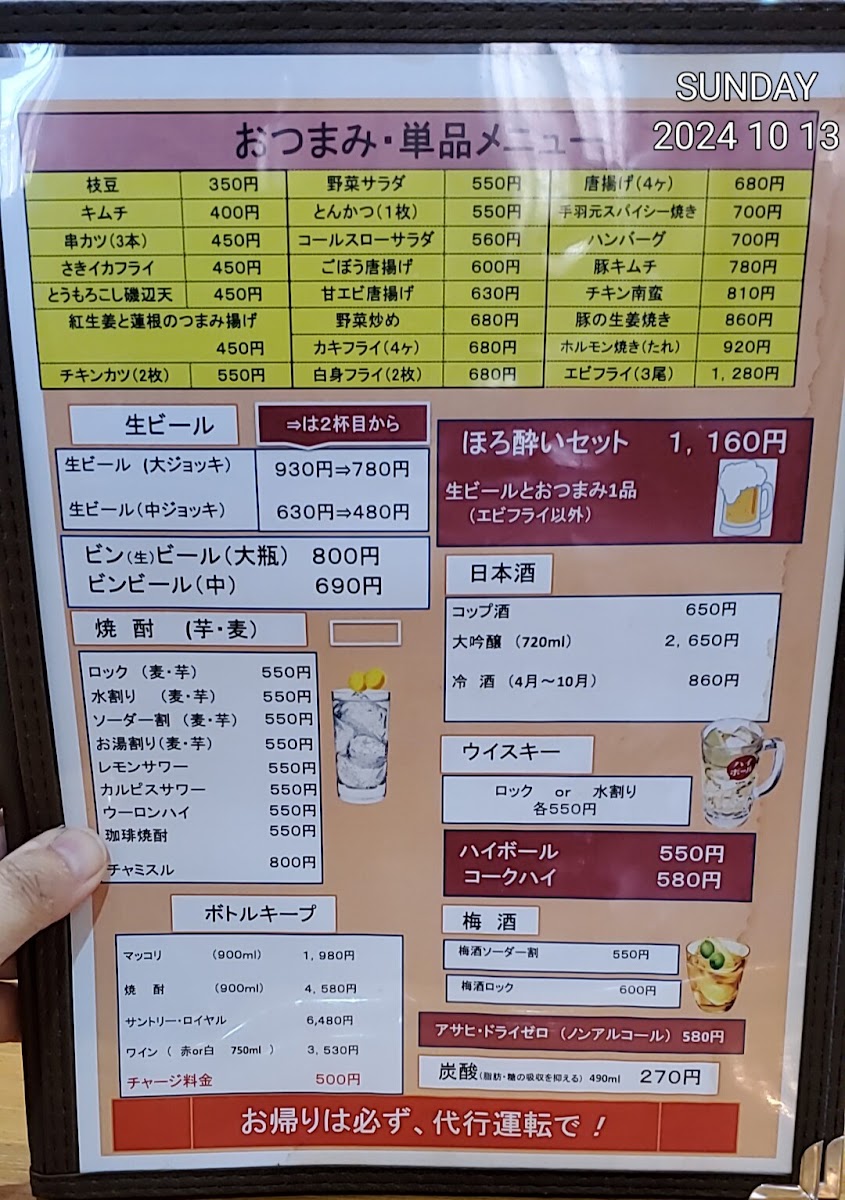 SUNDAY
2024 10 13
おつまみ・単品メニュー
枝豆 350円 野菜サラダ 550円 唐揚げ(4ヶ) 680円
キムチ 400円 とんかつ(1枚) 550円 手羽元スパイシー焼き 700円
串カツ(3本) 450円 コールスローサラダ 560円 ハンバーグ 700円
さきイカフライ 450円 ごぼう唐揚げ 600円 豚キムチ 780円
とうもろこし磯辺天 450円 甘エビ唐揚げ 630円 チキン南蛮 810円
紅生姜と蓮根のつまみ揚げ 野菜炒め 680円 豚の生姜焼き 860円
450円 カキフライ(4ヶ) 680円 ホルモン焼き(たれ) 920円
チキンカツ(2枚) 550円 白身フライ(2枚) 680円 エビフライ(3尾) 1,280円
生ビール ⇒は2杯目から
生ビール (大ジョッキ) 930円⇒780円
生ビール(中ジョッキ) 630円⇒480円
ほろ酔いセット 1,160円
生ビールとおつまみ1品
(エビフライ以外)
ビン(生)ビール(大瓶) 800円
ビンビール(中) 690円
焼 酎 (芋・麦)
ロック (麦・芋) 550円
水割り (麦・芋) 550円
ソーダー割 (麦・芋) 550円
お湯割り(麦・芋) 550円
レモンサワー 550円
カルピスサワー 550円
ウーロンハイ 550円
珈琲焼酎 550円
チャミスル 800円
日本酒
コップ酒 650円
大吟醸 (720ml) 2,650円
冷 酒 (4月～10月) 860円
ウイスキー
ロック or 水割り
各550円
ハイボール
ハイボール 550円
コークハイ 580円
ボトルキープ
マッコリ (900ml) 1,980円
焼 酎 (900ml) 4,580円
サントリー・ロイヤル 6,480円
ワイン ( 赤or白 750ml ) 3,530円
チャージ料金 500円
梅 酒
梅酒ソーダー割 550円
梅酒ロック 600円
アサヒ・ドライゼロ (ノンアルコール) 580円
炭酸(脂肪・糖の吸収を抑える) 490ml 270円
お帰りは必ず、代行運転で！